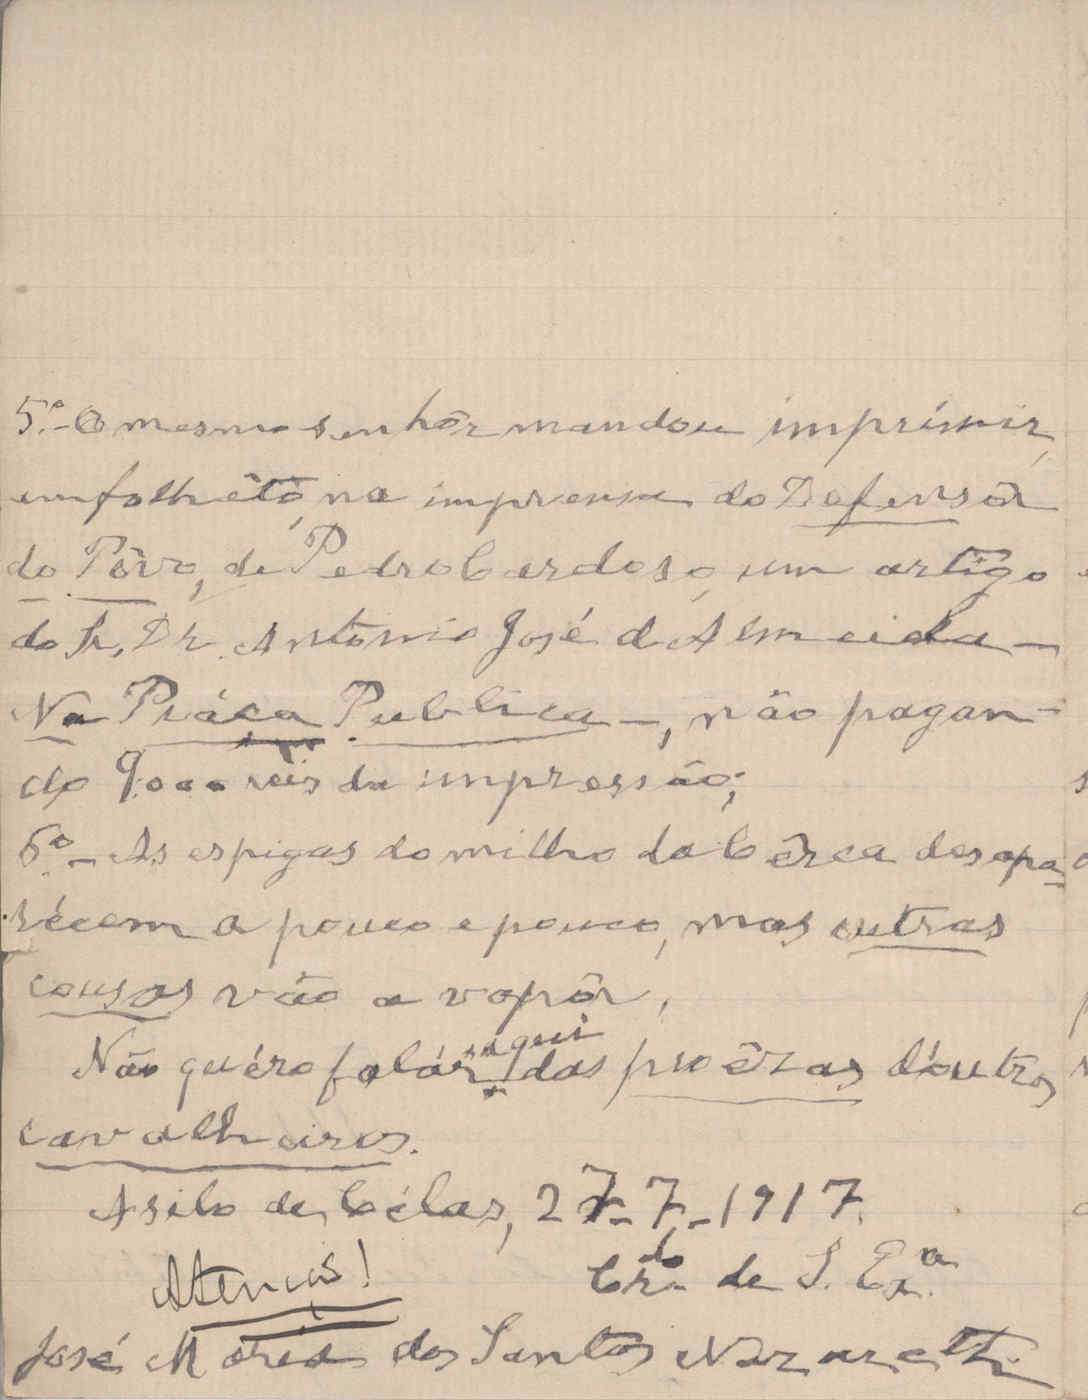 5.º - O mesmo senhôr mandou imprímir,
em folhêtò, na imprensa do Defensôr
do Pôvo, de Pedro Cardoso, um artigo
do Sr. Dr. Antonio José d'Almeida -
Na Práça Publica -, não pagan-
do 9.000 réis da impressão;
6.º - As espigas do milho da Cêrca desapa-
récem a pouco e pouco, mas outras
cousas vão a vapôr.
Não quéro falár aqui das proêzas d'outros
cavalheiros.
Asilo de Célas, 27-7-1917.
Crdo. de S. Exa.
José Maria dos Santos Nazareth.